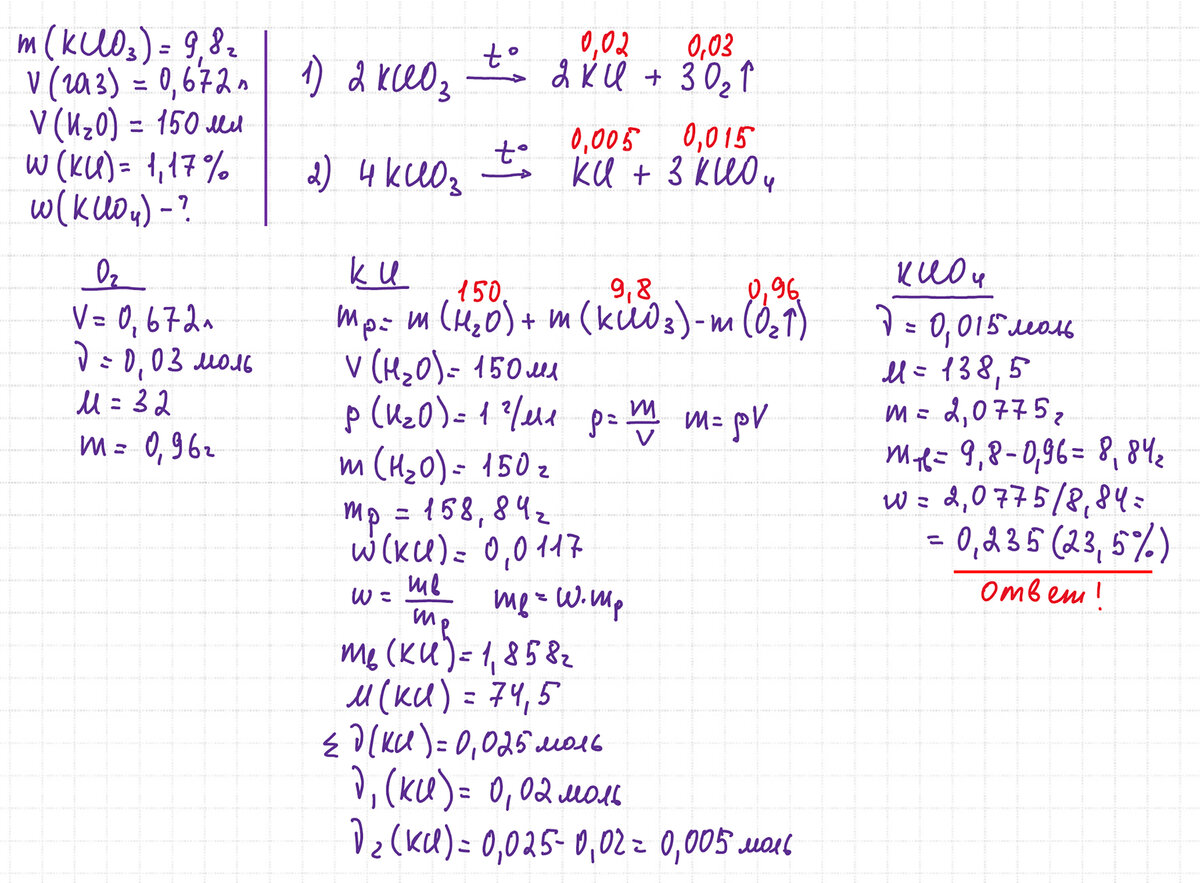 m(KClO₃) = 9,8г
V(газ) = 0,672л
V(H₂O) = 150 мл
w(KCl) = 1,17%
w(KClO₄) - ?
0,02 0,03
1) 2KClO₃ t° → 2KCl + 3O₂↑
0,005 0,015
2) 4KClO₃ t° → KCl + 3KClO₄
O₂
V = 0,672л
ν = 0,03 моль
M = 32
m = 0,96г
KCl
150 9,8 0,96
mр = m(H₂O) + m(KClO₃) - m(O₂↑)
V(H₂O) = 150мл
ρ(H₂O) = 1 г/мл ρ = m/V m = ρV
m(H₂O) = 150г
mр = 158,84г
w(KCl) = 0,0117
w = mв/mр mв = w·mр
mв(KCl) = 1,858г
M(KCl) = 74,5
Σ ν(KCl) = 0,025 моль
ν₁(KCl) = 0,02 моль
ν₂(KCl) = 0,025 - 0,02 = 0,005 моль
KClO₄
ν = 0,015 моль
M = 138,5
m = 2,0775г
mтв = 9,8 - 0,96 = 8,84г
w = 2,0775/8,84 =
= 0,235 (23,5%)
Ответ!